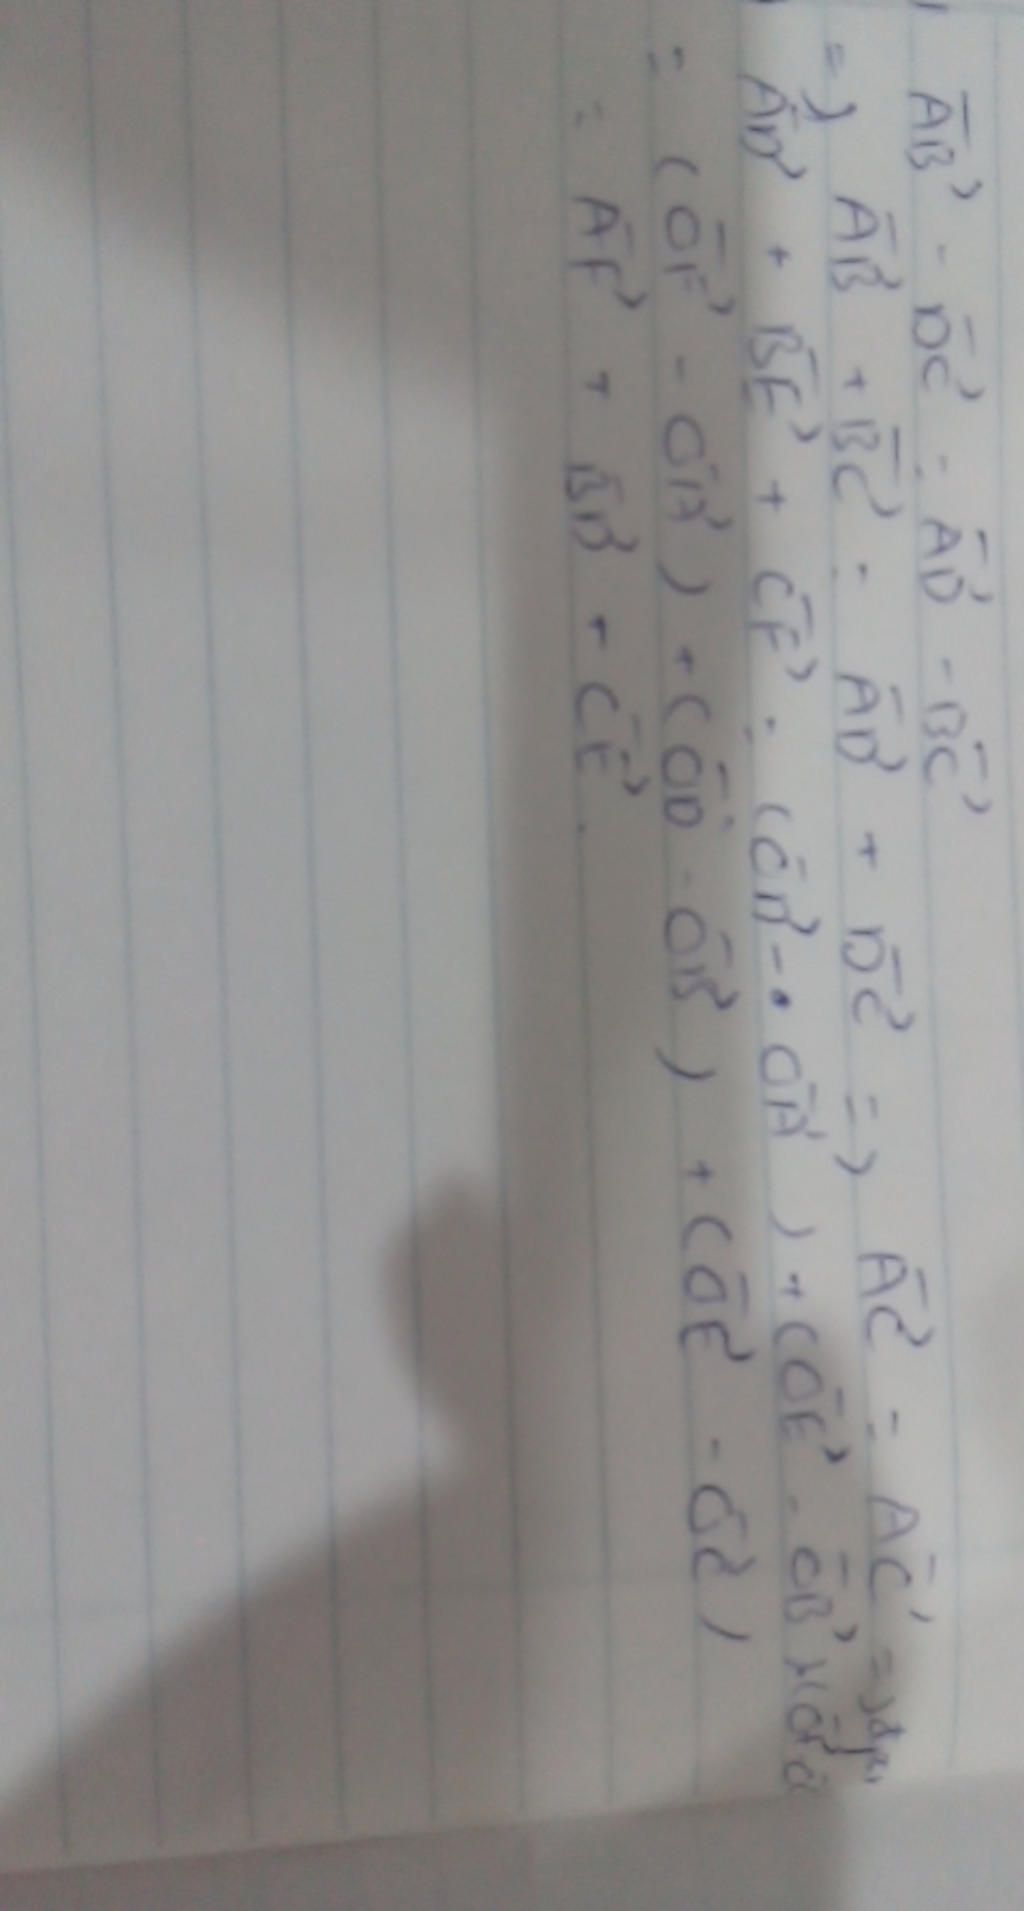 \overrightarrow{AB} - \overrightarrow{DC} = \overrightarrow{AD} - \overrightarrow{BC}
=) \overrightarrow{AB} + \overrightarrow{BC} = \overrightarrow{AD} + \overrightarrow{DC} =) \overrightarrow{AC} = \overrightarrow{AC} =)
\overrightarrow{AD} + \overrightarrow{BE} + \overrightarrow{CF} = (\overrightarrow{OD} - \overrightarrow{OA}) + (\overrightarrow{OE} - \overrightarrow{OB})
= (\overrightarrow{OF} - \overrightarrow{OA}) + (\overrightarrow{OD} - \overrightarrow{OB}) + (\overrightarrow{OE} - \overrightarrow{OC})
= \overrightarrow{AF} + \overrightarrow{BD} + \overrightarrow{CE}.